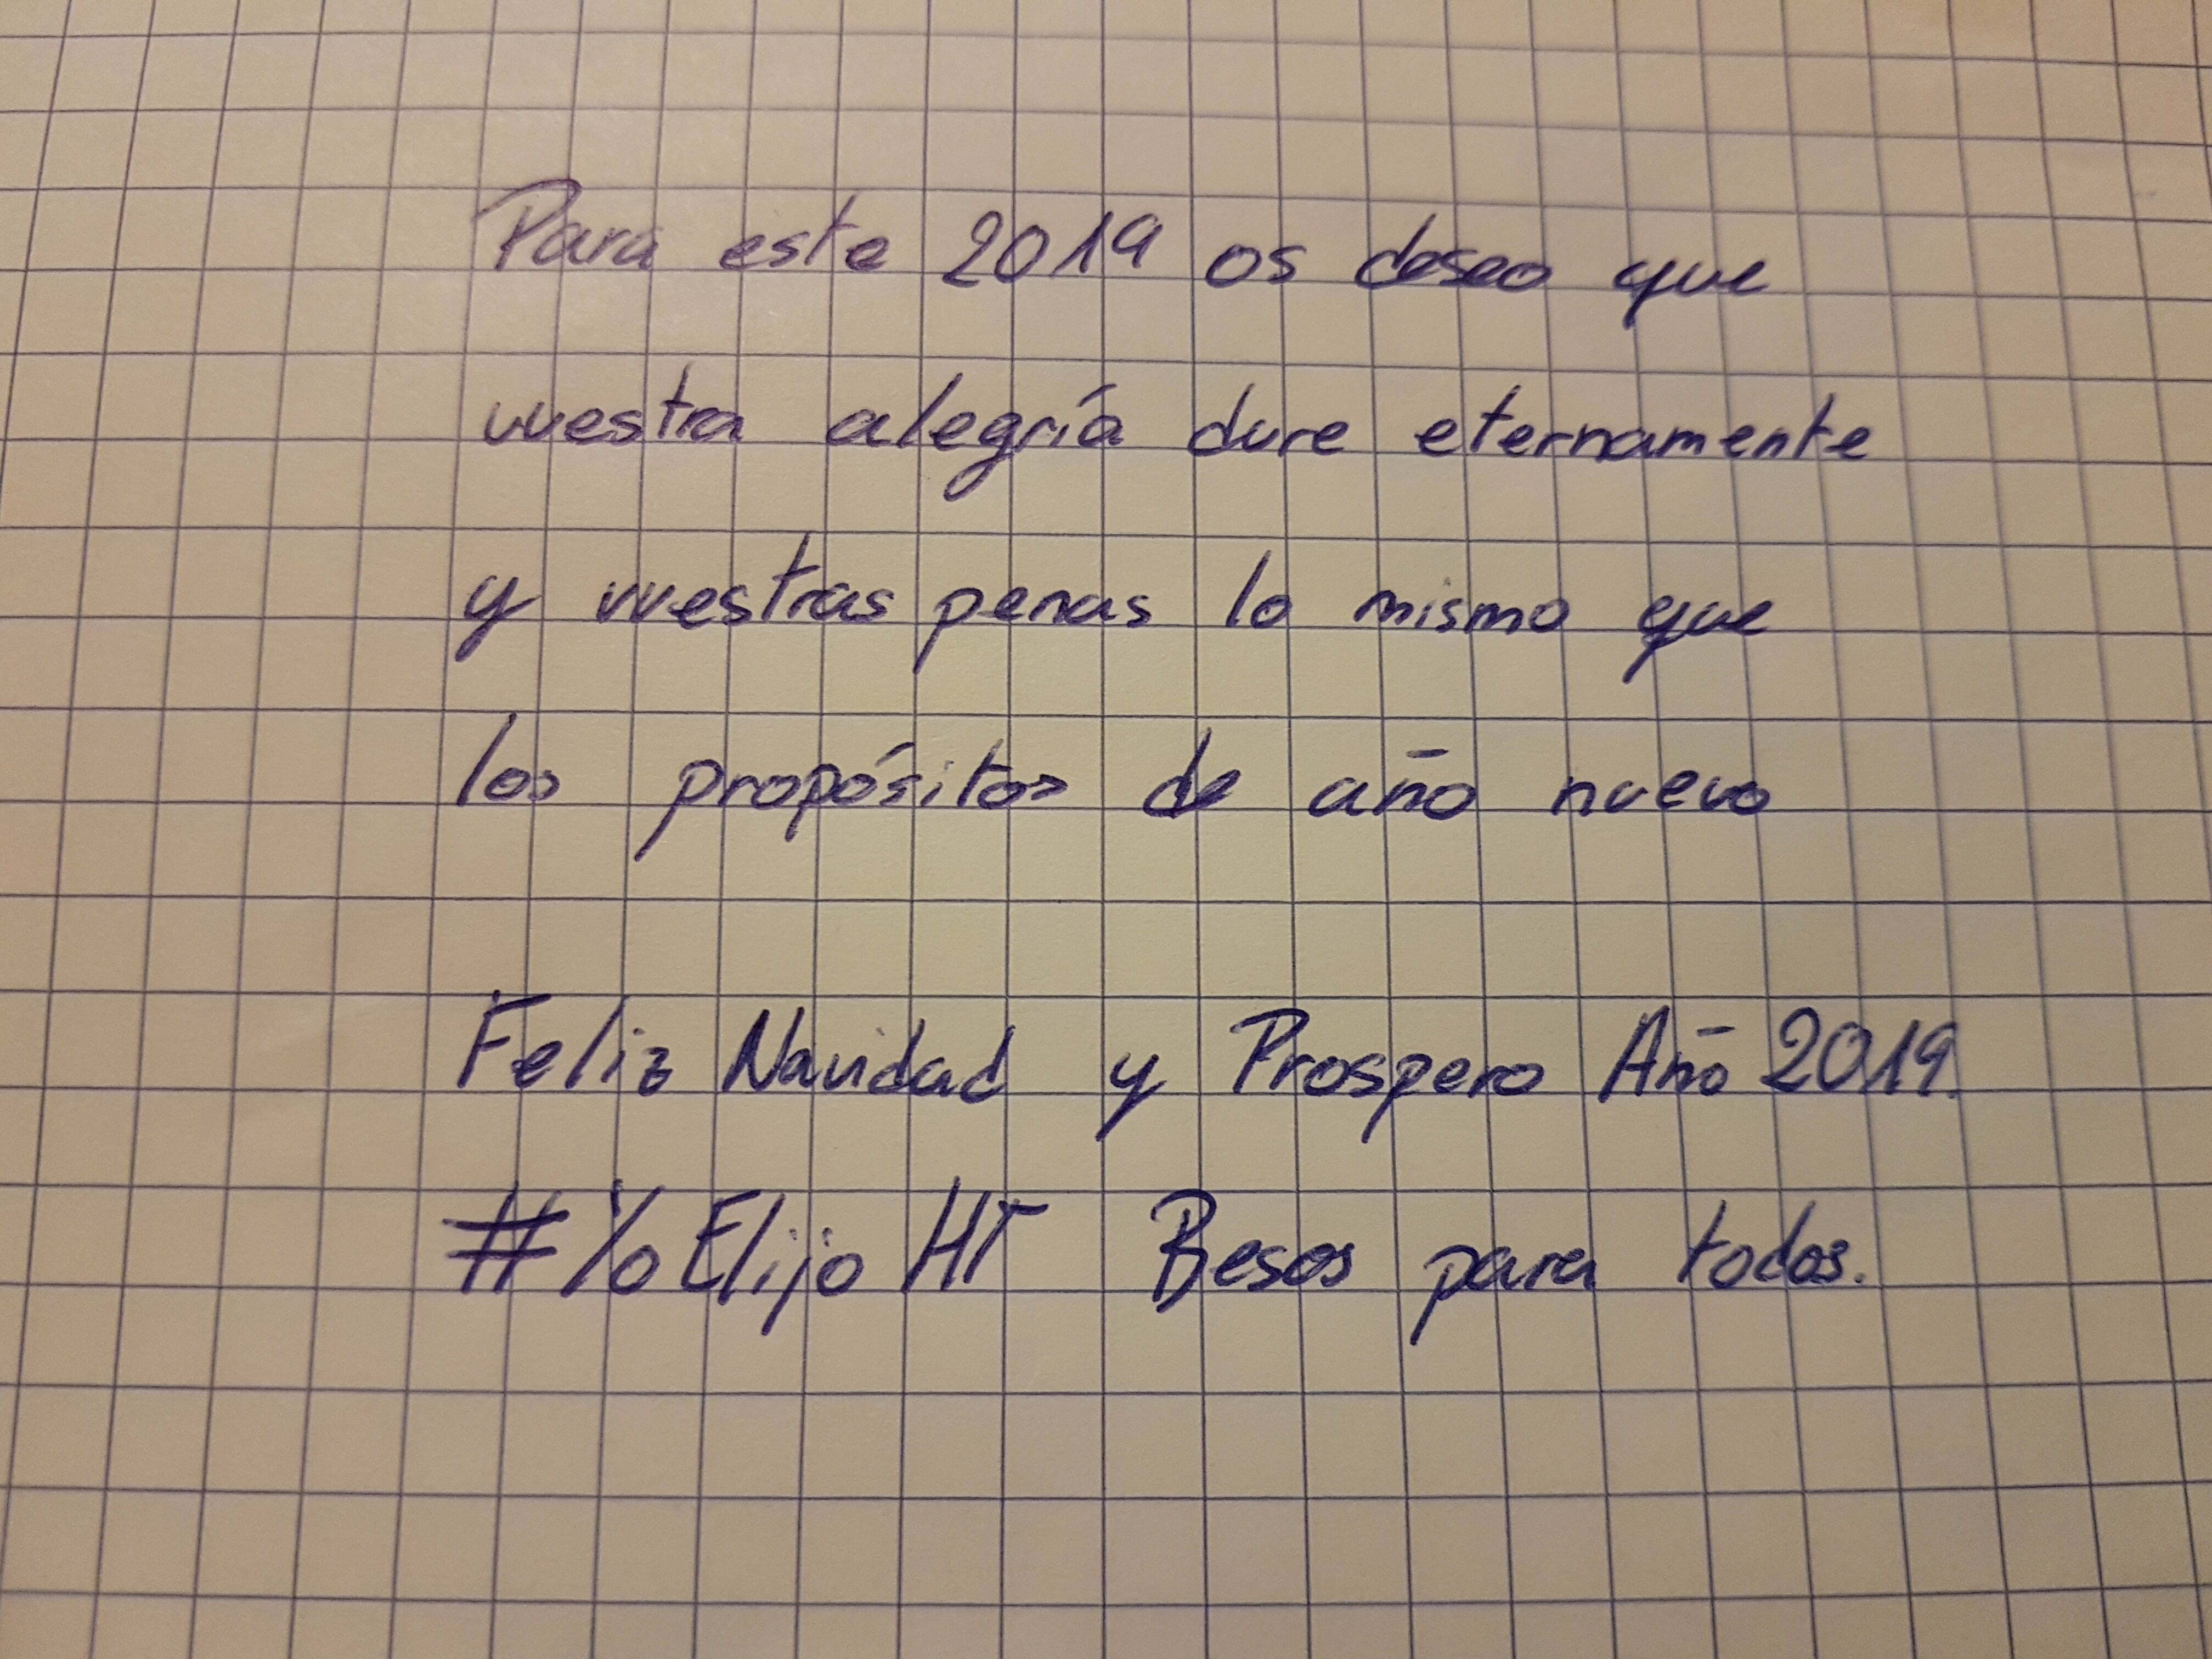 Para este 2019 os deseo que
vuestra alegría dure eternamente
y vuestras penas lo mismo que
los propósitos de año nuevo
Feliz Navidad y Prospero Año 2019.
#YoElijoHT Besos para todos.